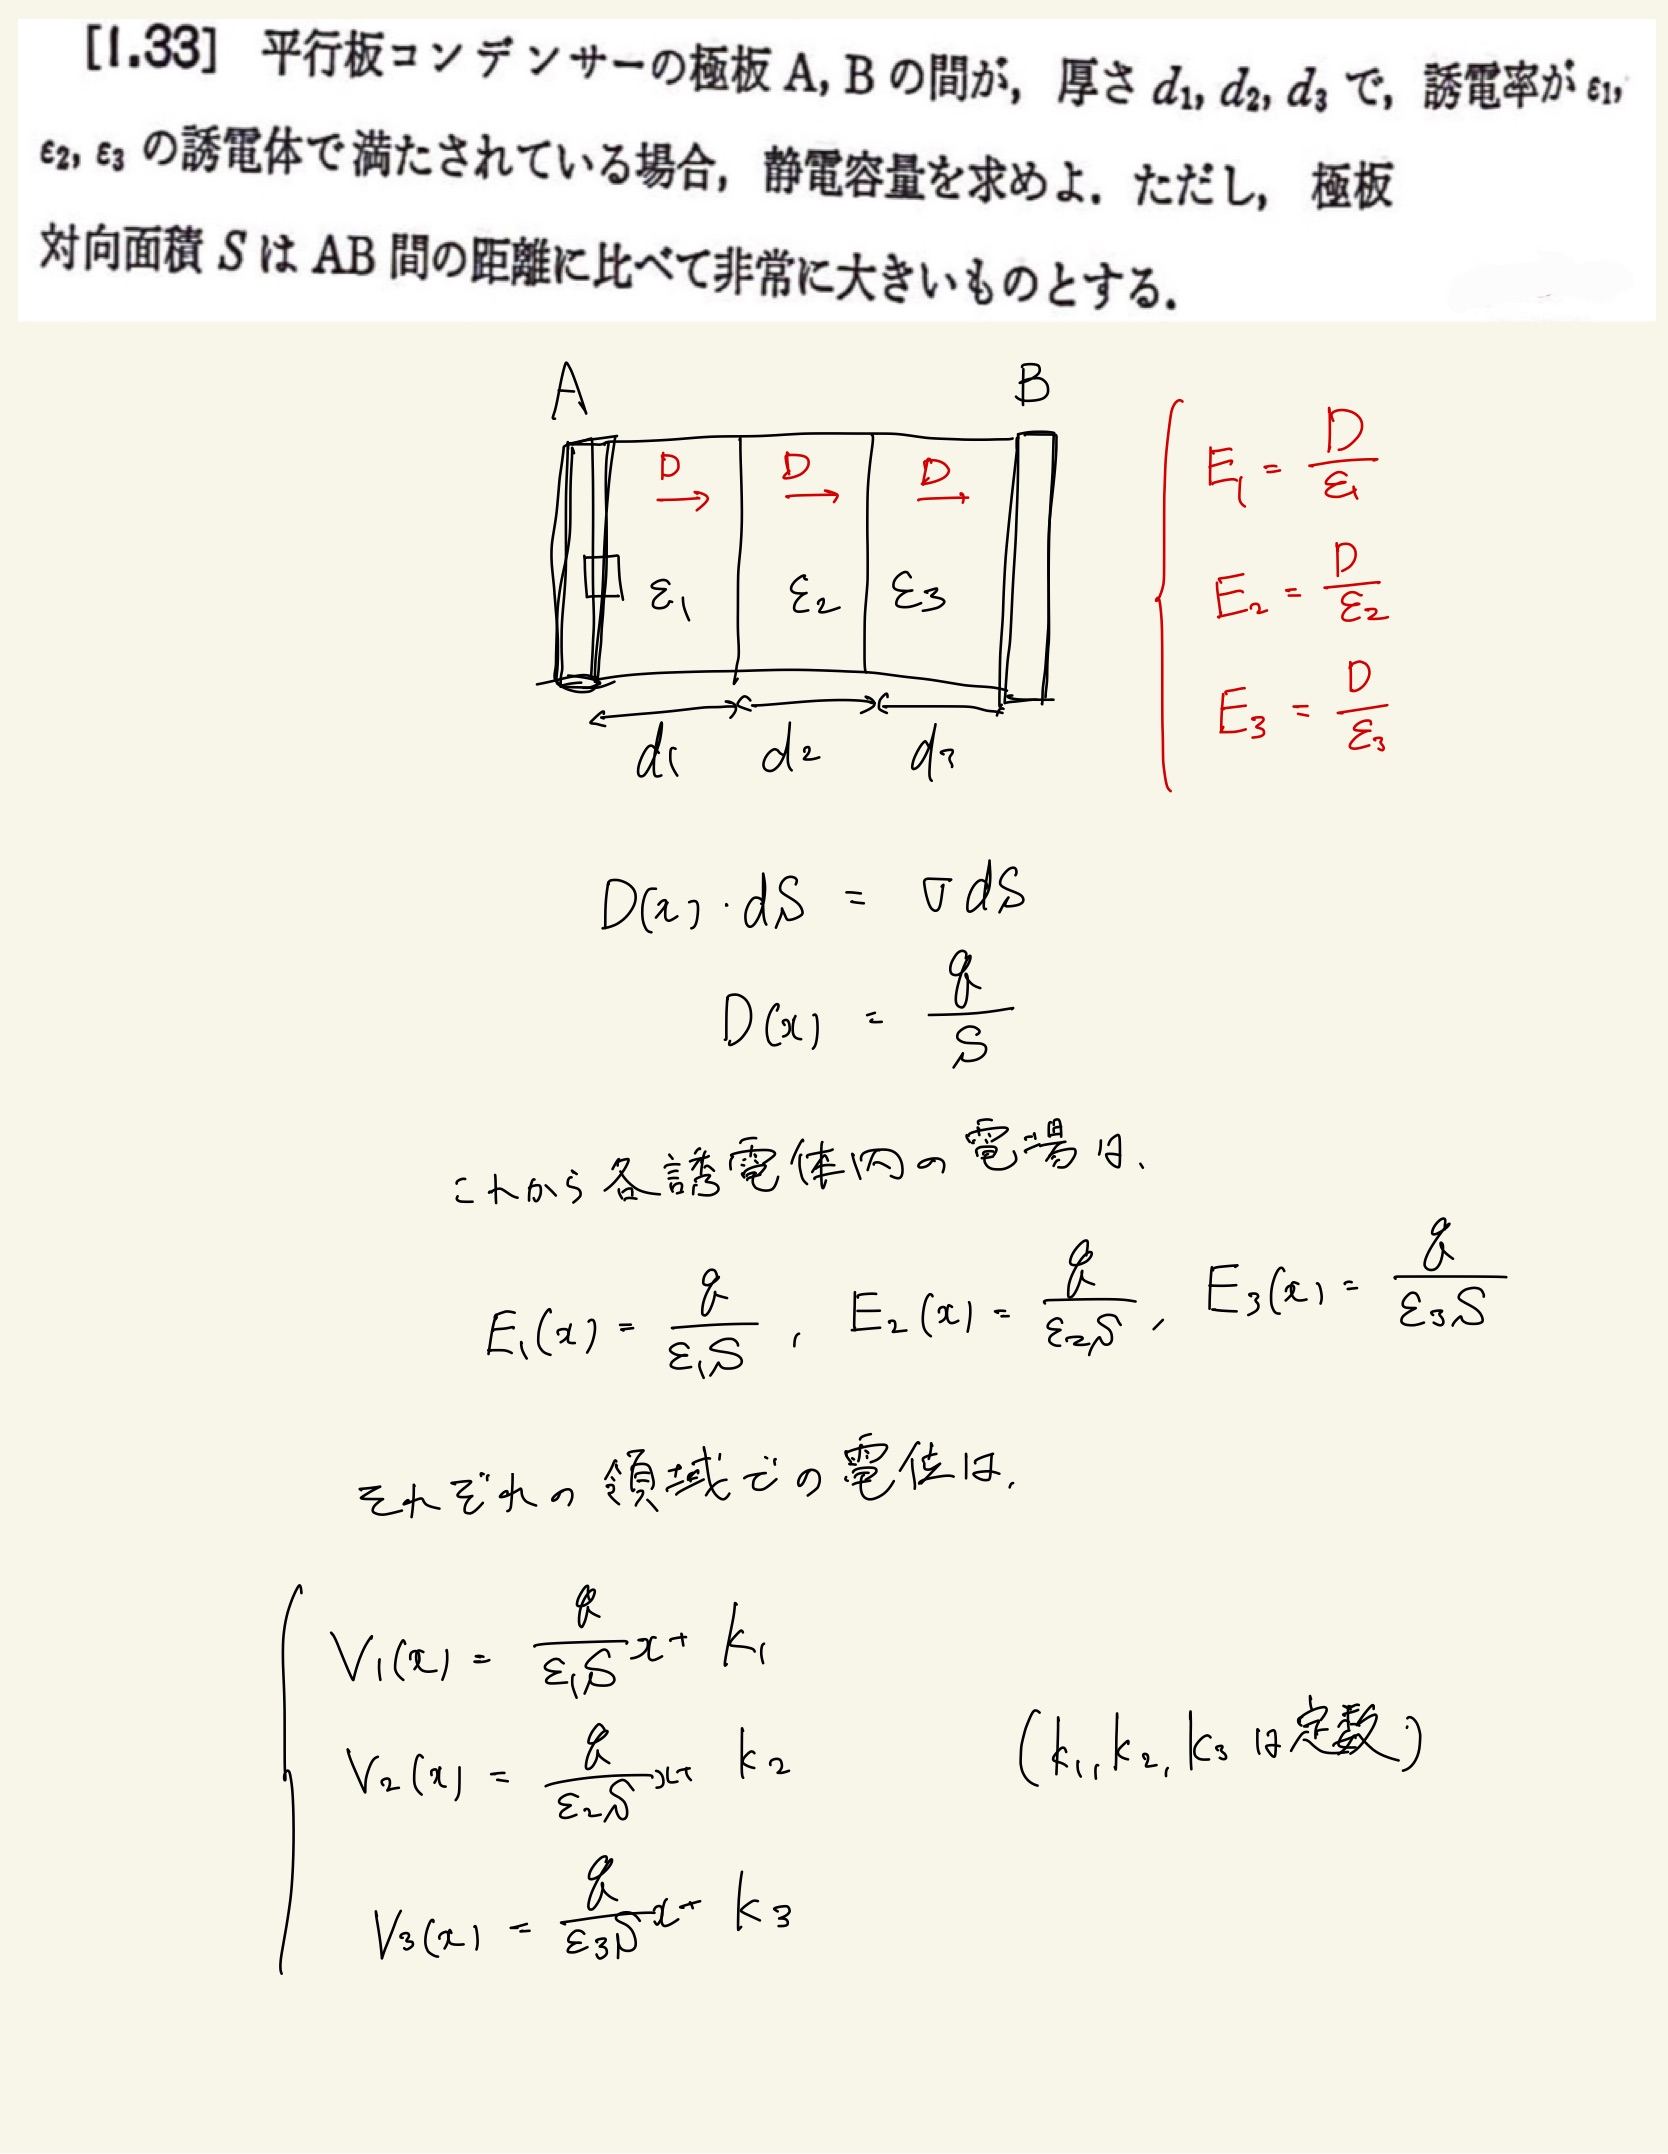 [1.33] 平行板コンデンサーの極板 A, B の間が, 厚さ d₁, d₂, d₃ で, 誘電率が ε₁,
ε₂, ε₃ の誘電体で満たされている場合, 静電容量を求めよ. ただし, 極板
対向面積 S は AB 間の距離に比べて非常に大きいものとする.
A B
D D D
ε₁ ε₂ ε₃
d₁ d₂ d₃
E₁ = D/ε₁
E₂ = D/ε₂
E₃ = D/ε₃
D(x)・dS = σdS
D(x) = q/S
これから各誘電体内の電場は、
E₁(x) = q/ε₁S , E₂(x) = q/ε₂S , E₃(x) = q/ε₃S
それぞれの領域での電位は、
V₁(x) = q/ε₁S x + k₁
V₂(x) = q/ε₂S x + k₂ (k₁, k₂, k₃ は定数)
V₃(x) = q/ε₃S x + k₃